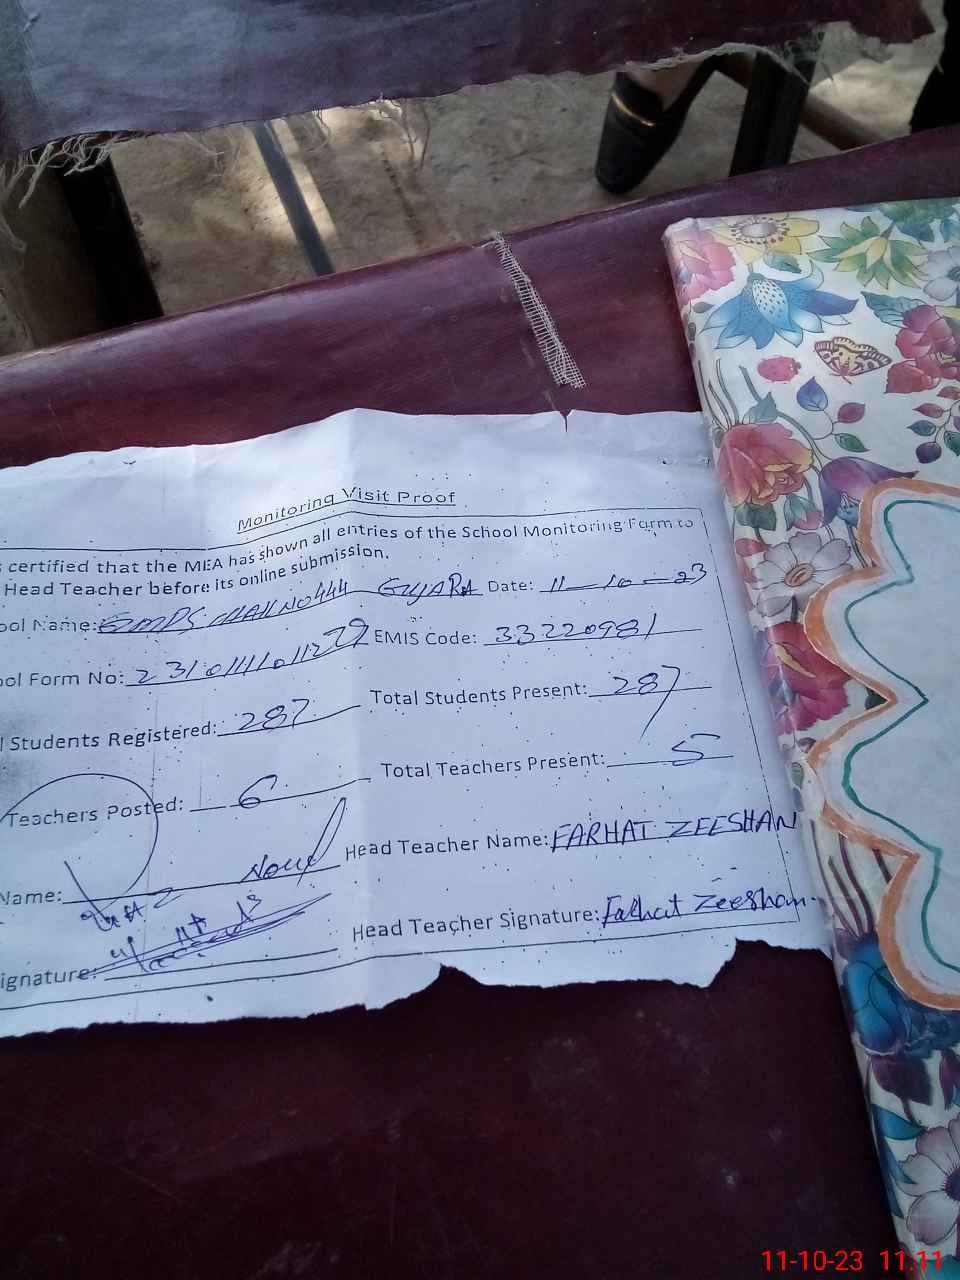 Monitoring Visit Proof
certified that the MEA has shown all entries of the School Monitoring Form to
Head Teacher before its online submission.
ool Name: GMPS CHAK NO 444 GUJARA Date: 11-10-23
ool Form No: EMIS Code: 33220981
l Students Registered: 287 Total Students Present: 287
Teachers Posted: 6 Total Teachers Present: 5
Name: Head Teacher Name: FARHAT ZEESHAN
ignature: Head Teacher Signature: Farhat Zeeshan
11-10-23 11:11